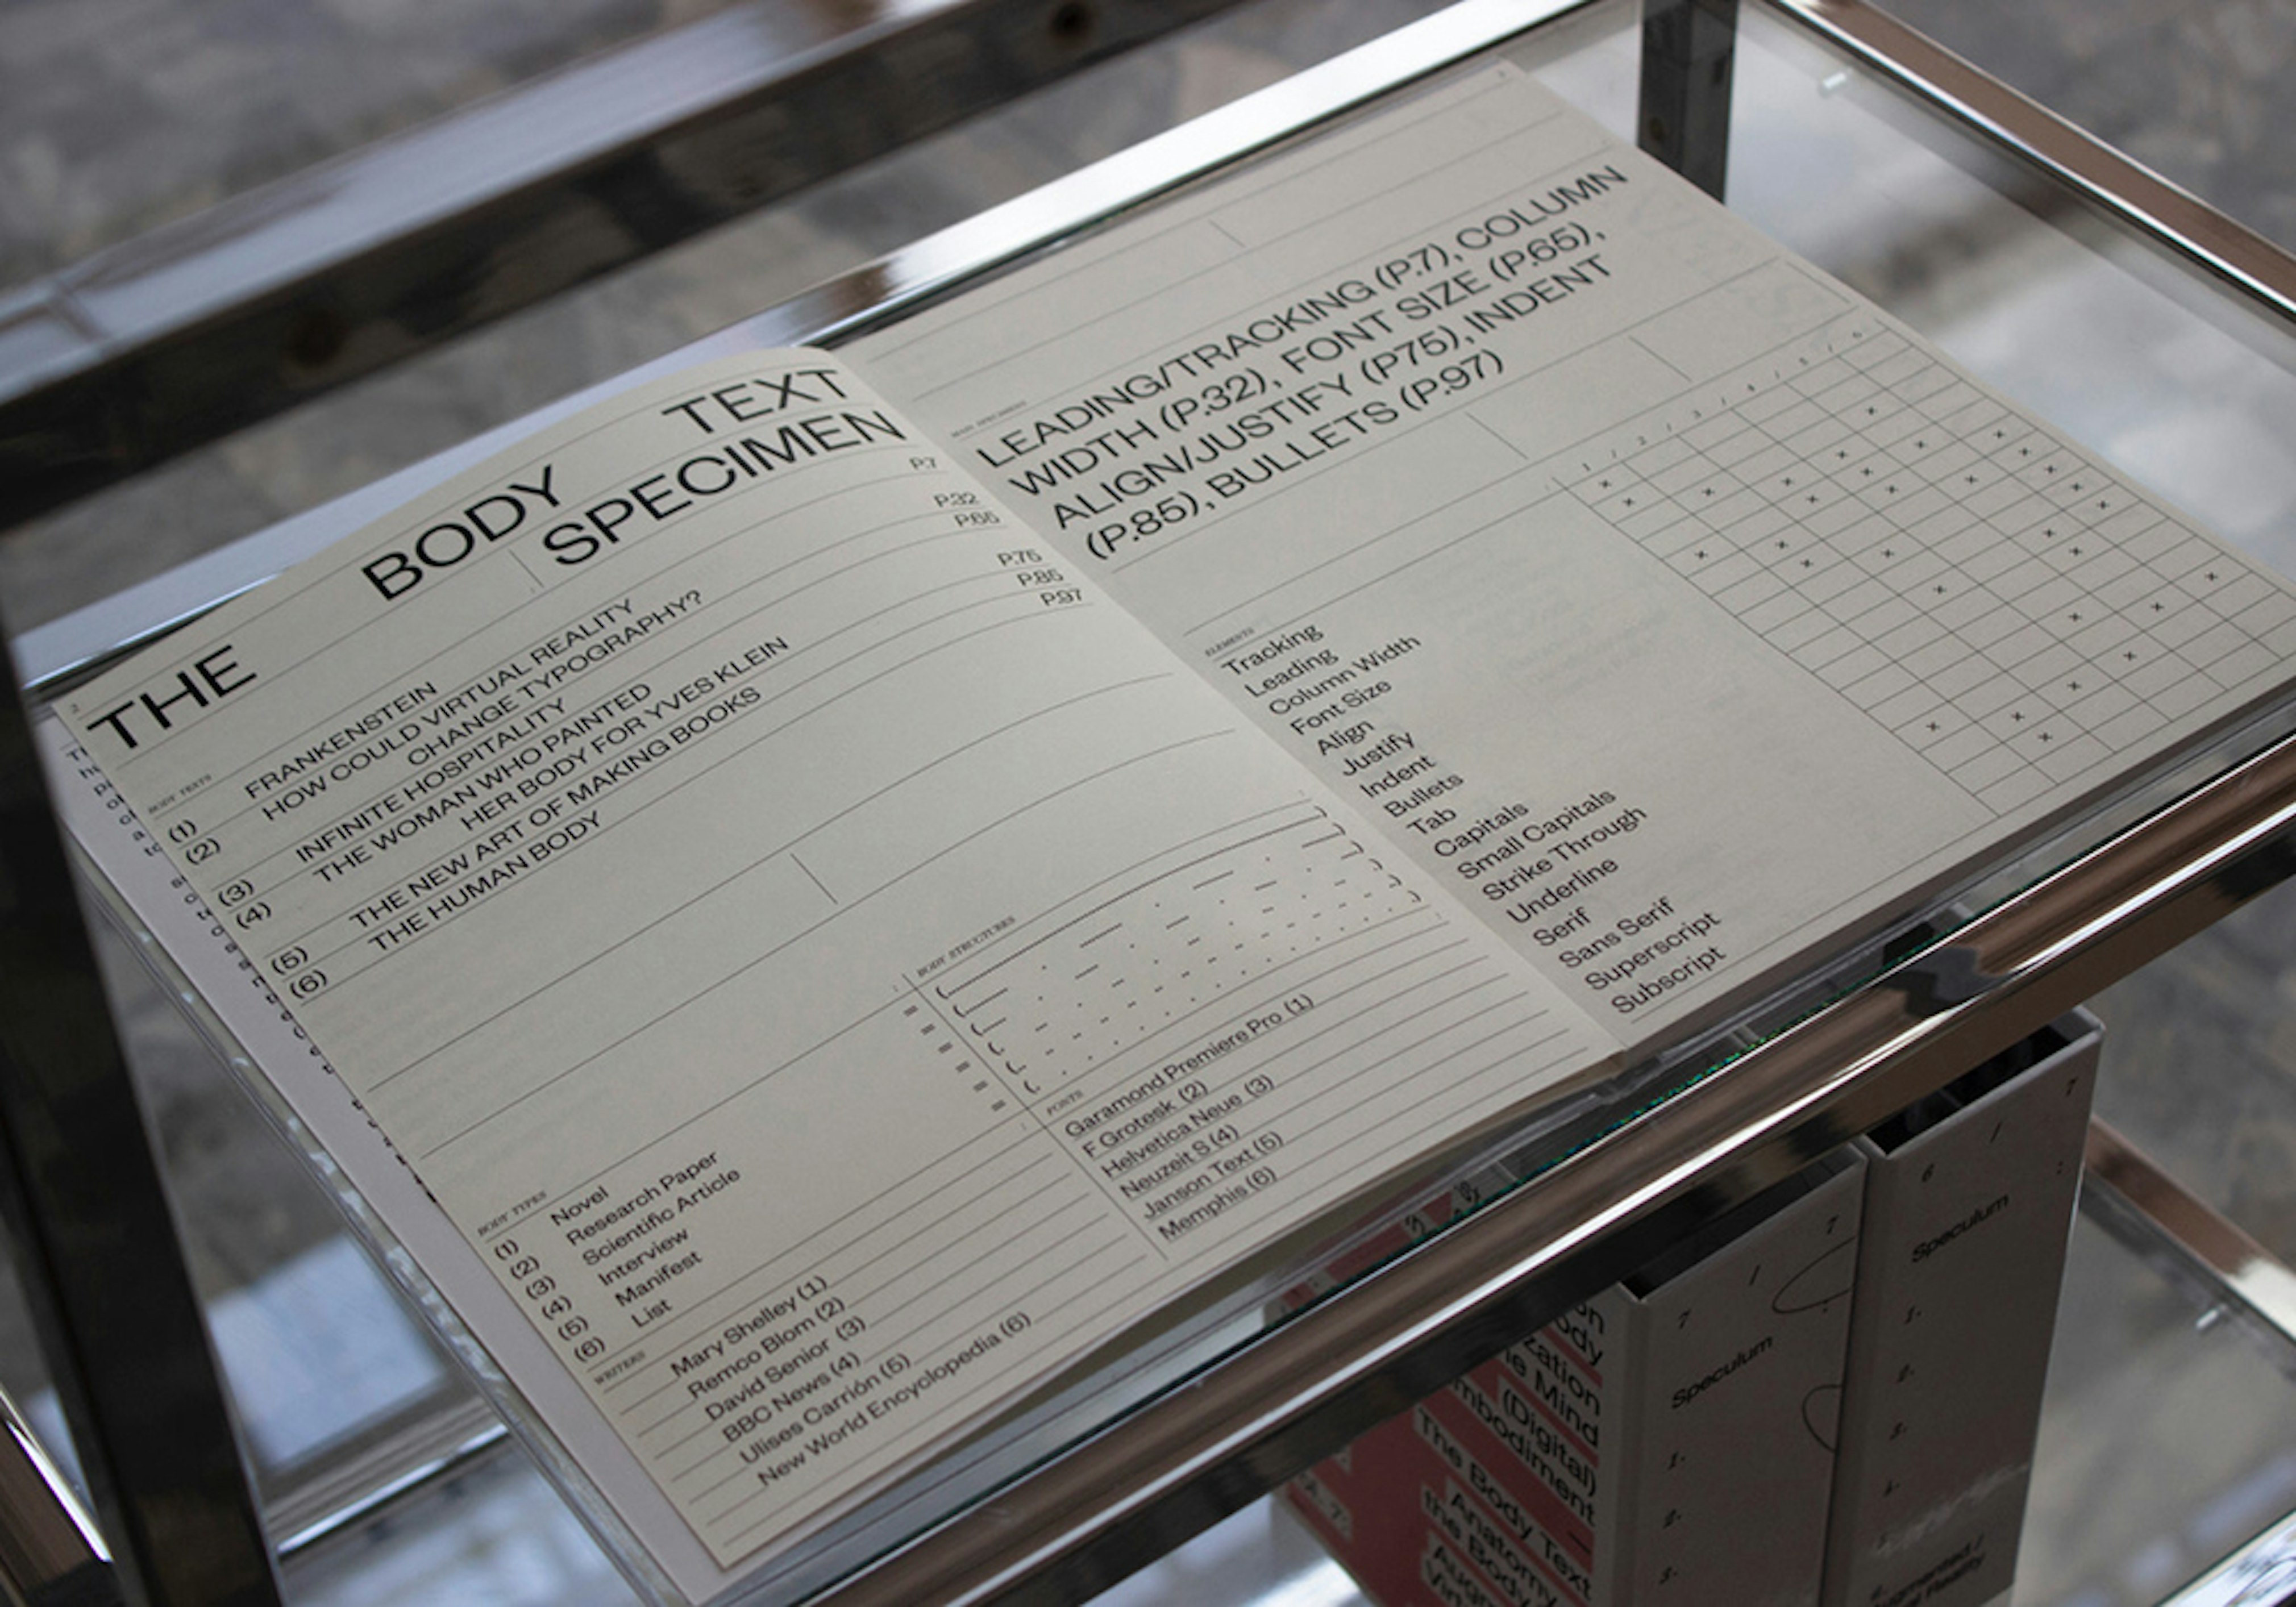 THE
BODY
TEXT
SPECIMEN
BODY TEXTS
(1) FRANKENSTEIN P.7
(2) HOW COULD VIRTUAL REALITY
CHANGE TYPOGRAPHY? P.32
(3) INFINITE HOSPITALITY P.65
(4) THE WOMAN WHO PAINTED
HER BODY FOR YVES KLEIN P.75
(5) THE NEW ART OF MAKING BOOKS P.85
(6) THE HUMAN BODY P.97
BODY STRUCTURES
BODY TYPES
(1) Novel
(2) Research Paper
(3) Scientific Article
(4) Interview
(5) Manifest
(6) List
FONTS
Garamond Premiere Pro (1)
F Grotesk (2)
Helvetica Neue (3)
Neuzeit S (4)
Janson Text (5)
Memphis (6)
WRITERS
Mary Shelley (1)
Remco Blom (2)
David Senior (3)
BBC News (4)
Ulises Carrión (5)
New World Encyclopedia (6)
LEADING/TRACKING (P.7), COLUMN
WIDTH (P.32), FONT SIZE (P.65),
ALIGN/JUSTIFY (P75), INDENT
(P.85), BULLETS (P.97)
1 / 2 / 3 / 4 / 5 / 6
ELEMENTS
Tracking
Leading
Column Width
Font Size
Align
Justify
Indent
Bullets
Tab
Capitals
Small Capitals
Strike Through
Underline
Serif
Sans Serif
Superscript
Subscript
(Digital)
The Body Text
Anatomy
7 / 7
Speculum
1.
2.
3.
6 / 7
Speculum
1.
2.
3.
4.